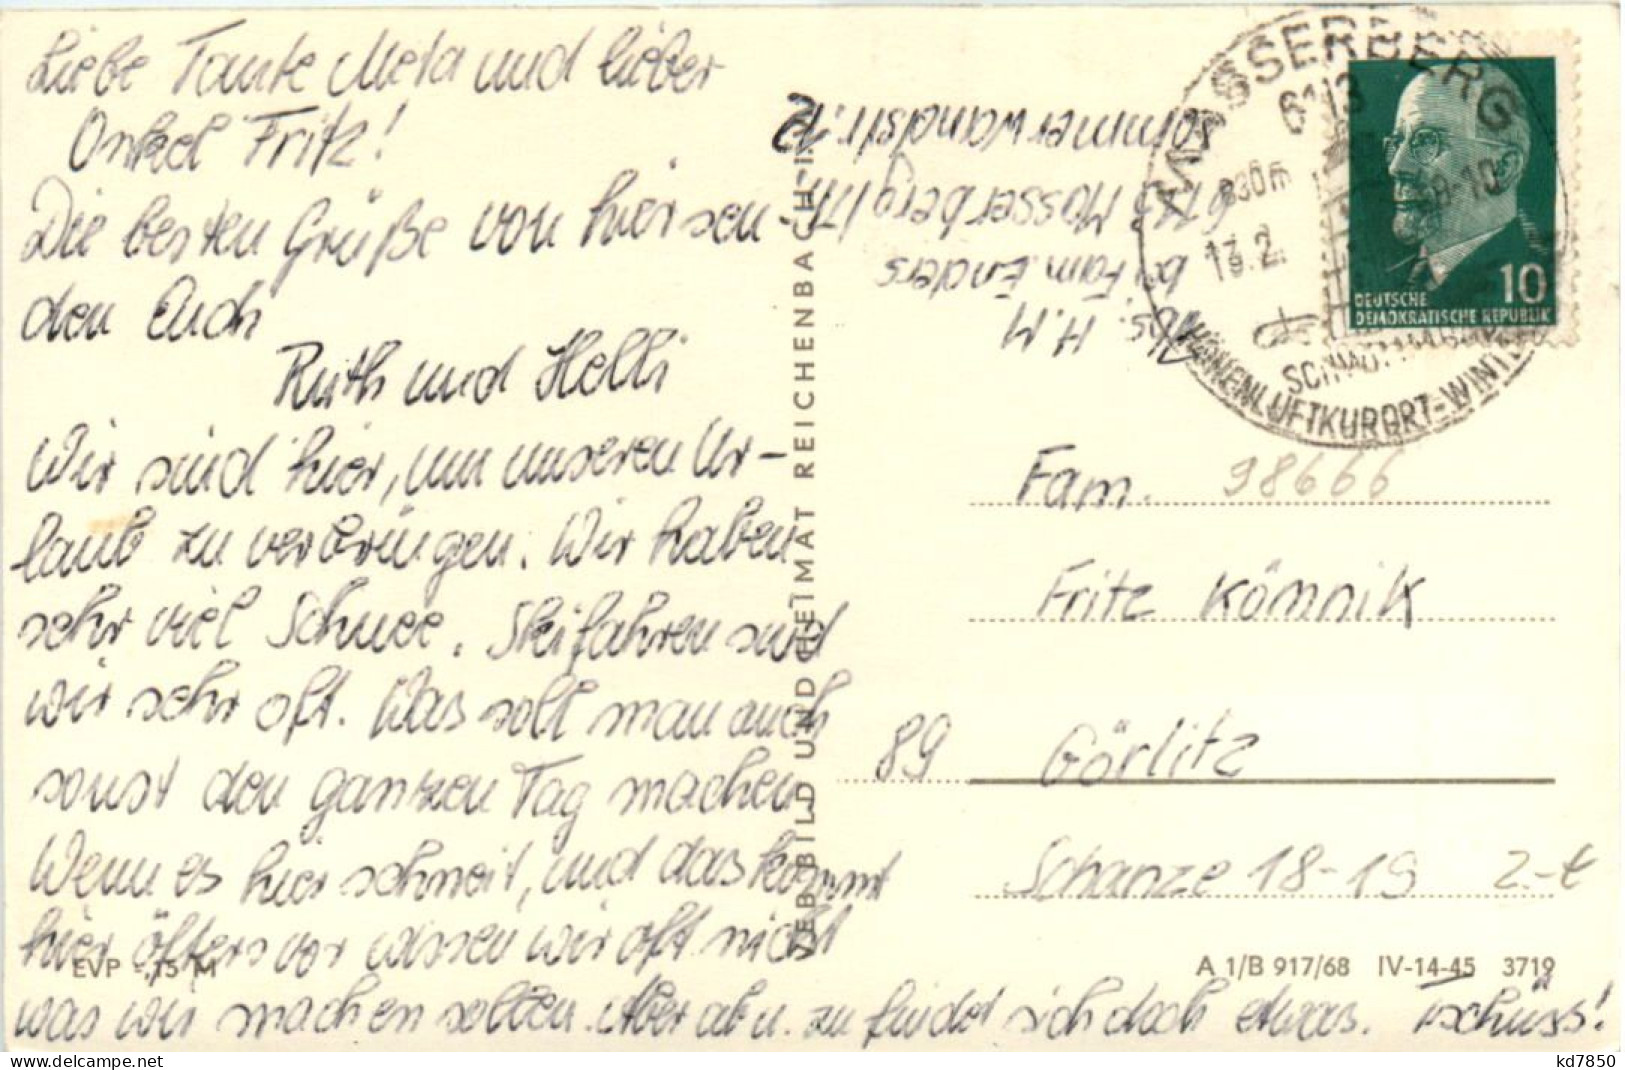 Liebe Tante Meta und lieber
Onkel Fritz!
Die besten Grüße von hier sen-
den Euch
Ruth und Helli
Wir sind hier, um unseren Ur-
laub zu verbringen. Wir haben
sehr viel Schnee. Skifahren sind
wir sehr oft. Was soll man auch
sonst den ganzen Tag machen.
Wenn es hier schneit, und das kommt
hier öfters vor wissen wir oft nicht
was wir machen sollen. Aber ab u. zu findet sich doch etwas. Tschüss!
EVP -,15 M
VEB BILD UND HEIMAT REICHENBACH i. V.
Abs.: H.M
bei Fam. Enders
6113 Masserberg/Th
Sommerwandstr. 12
MASSERBERG
6113
830m
13.2.
-10
HÖHENLUFTKURORT-WINT
DEUTSCHE
DEMOKRATISCHE REPUBLIK
10
Fam.
98666
Fritz Könnik
89 Görlitz
Schanze 18-19
2.-€
A 1/B 917/68 IV-14-45 3719
delcampe.net
kd7850